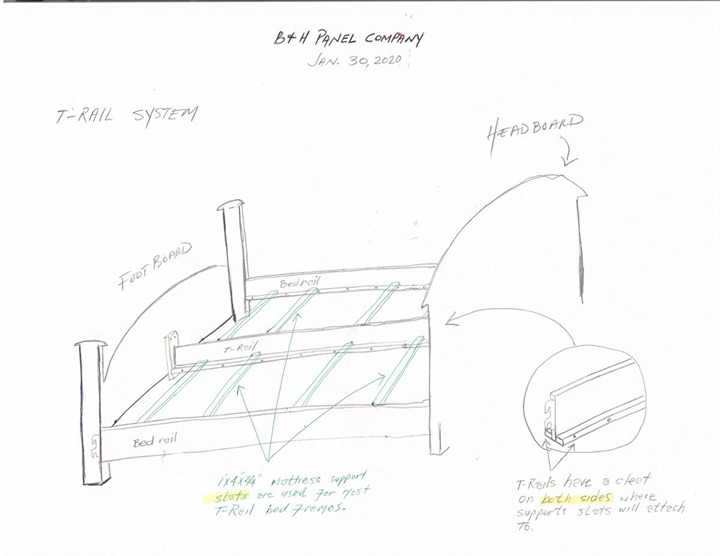 B&H PANEL COMPANY
JAN. 30, 2020
T-RAIL SYSTEM
HEADBOARD
FOOTBOARD
Bedrail
T-Rail
Bed rail
mattress support
slats are used for most
T-Rail bed frames.
T-Rails have a cleat
on both sides where
supports slats will attach
to.